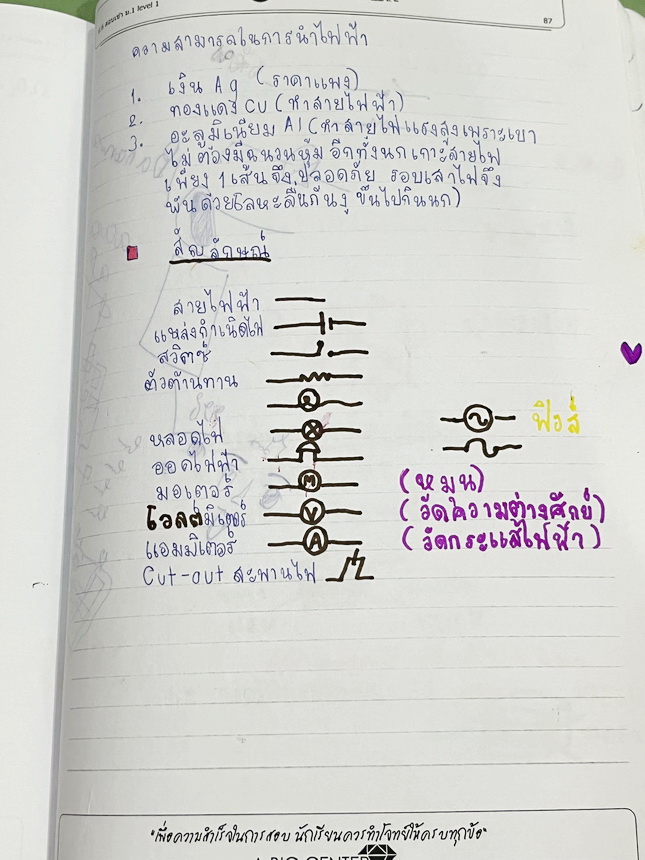 ม.1 level 1
87
ความสามารถในการนำไฟฟ้า
1. เงิน Ag (ราคาแพง)
2. ทองแดง Cu (ทำสายไฟฟ้า)
3. อะลูมิเนียม Al (ทำสายไฟแรงสูงเพราะเบา
ไม่ต้องมีฉนวนหุ้ม อีกทั้งนกเกาะสายไฟ
เพียง 1 เส้นจึงปลอดภัย รอบเสาไฟจึง
พันด้วยโลหะลื่นกันงู ขึ้นไปกินนก)
สัญลักษณ์
สายไฟฟ้า
แหล่งกำเนิดไฟ
สวิตซ์
ตัวต้านทาน
ฟิวส์
หลอดไฟ
ออดไฟฟ้า
มอเตอร์ M (หมุน)
โวลต์มิเตอร์ V (วัดความต่างศักย์)
แอมมิเตอร์ A (วัดกระแสไฟฟ้า)
Cut-out สะพานไฟ
"เพื่อความสำเร็จในการสอบ นักเรียนควรทำโจทย์ให้ครบทุกข้อ"
BIO CENTER